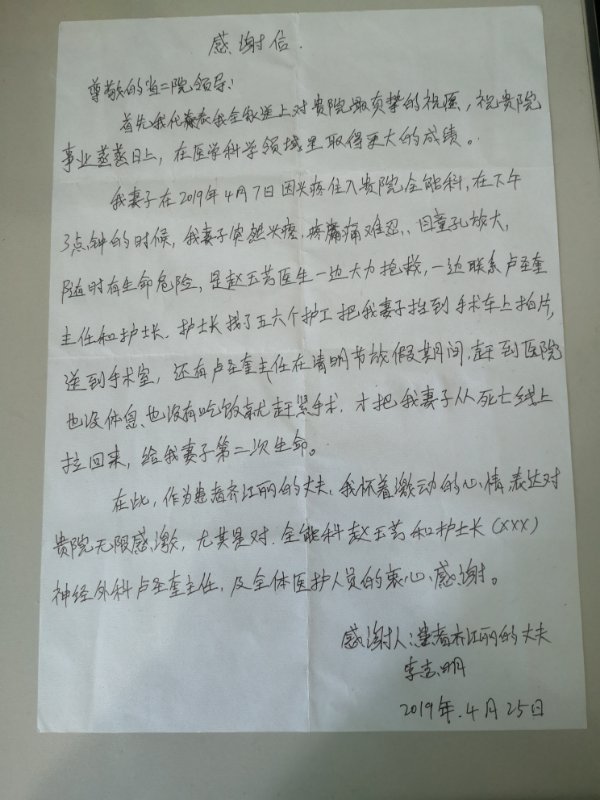 感谢信.
尊敬的省二院领导:
首先我代表我全家送上对贵院最真挚的祝愿, 祝贵院
事业蒸蒸日上, 在医学科学领域里取得更大的成绩。
我妻子在2019年4月7日因头疼住入贵院全能科, 在下午
3点钟的时候, 我妻子突然头疼, 疼痛难忍, 因瞳孔放大,
随时有生命危险, 是赵玉芳医生一边大力抢救, 一边联系卢圣奎
主任和护士长, 护士长找了五六个护工把我妻子抬到手术车上拍片,
送到手术室, 还有卢圣奎主任在清明节放假期间, 赶到医院
也没休息、也没有吃饭就赶紧手术, 才把我妻子从死亡线上
拉回来, 给我妻子第二次生命。
在此, 作为患者齐江丽的丈夫, 我怀着激动的心情表达对
贵院无限感激, 尤其是对全能科赵玉芳和护士长(XXX)
神经外科卢圣奎主任, 及全体医护人员的衷心感谢。
感谢人: 患者齐江丽的丈夫
李志明
2019年.4月25日